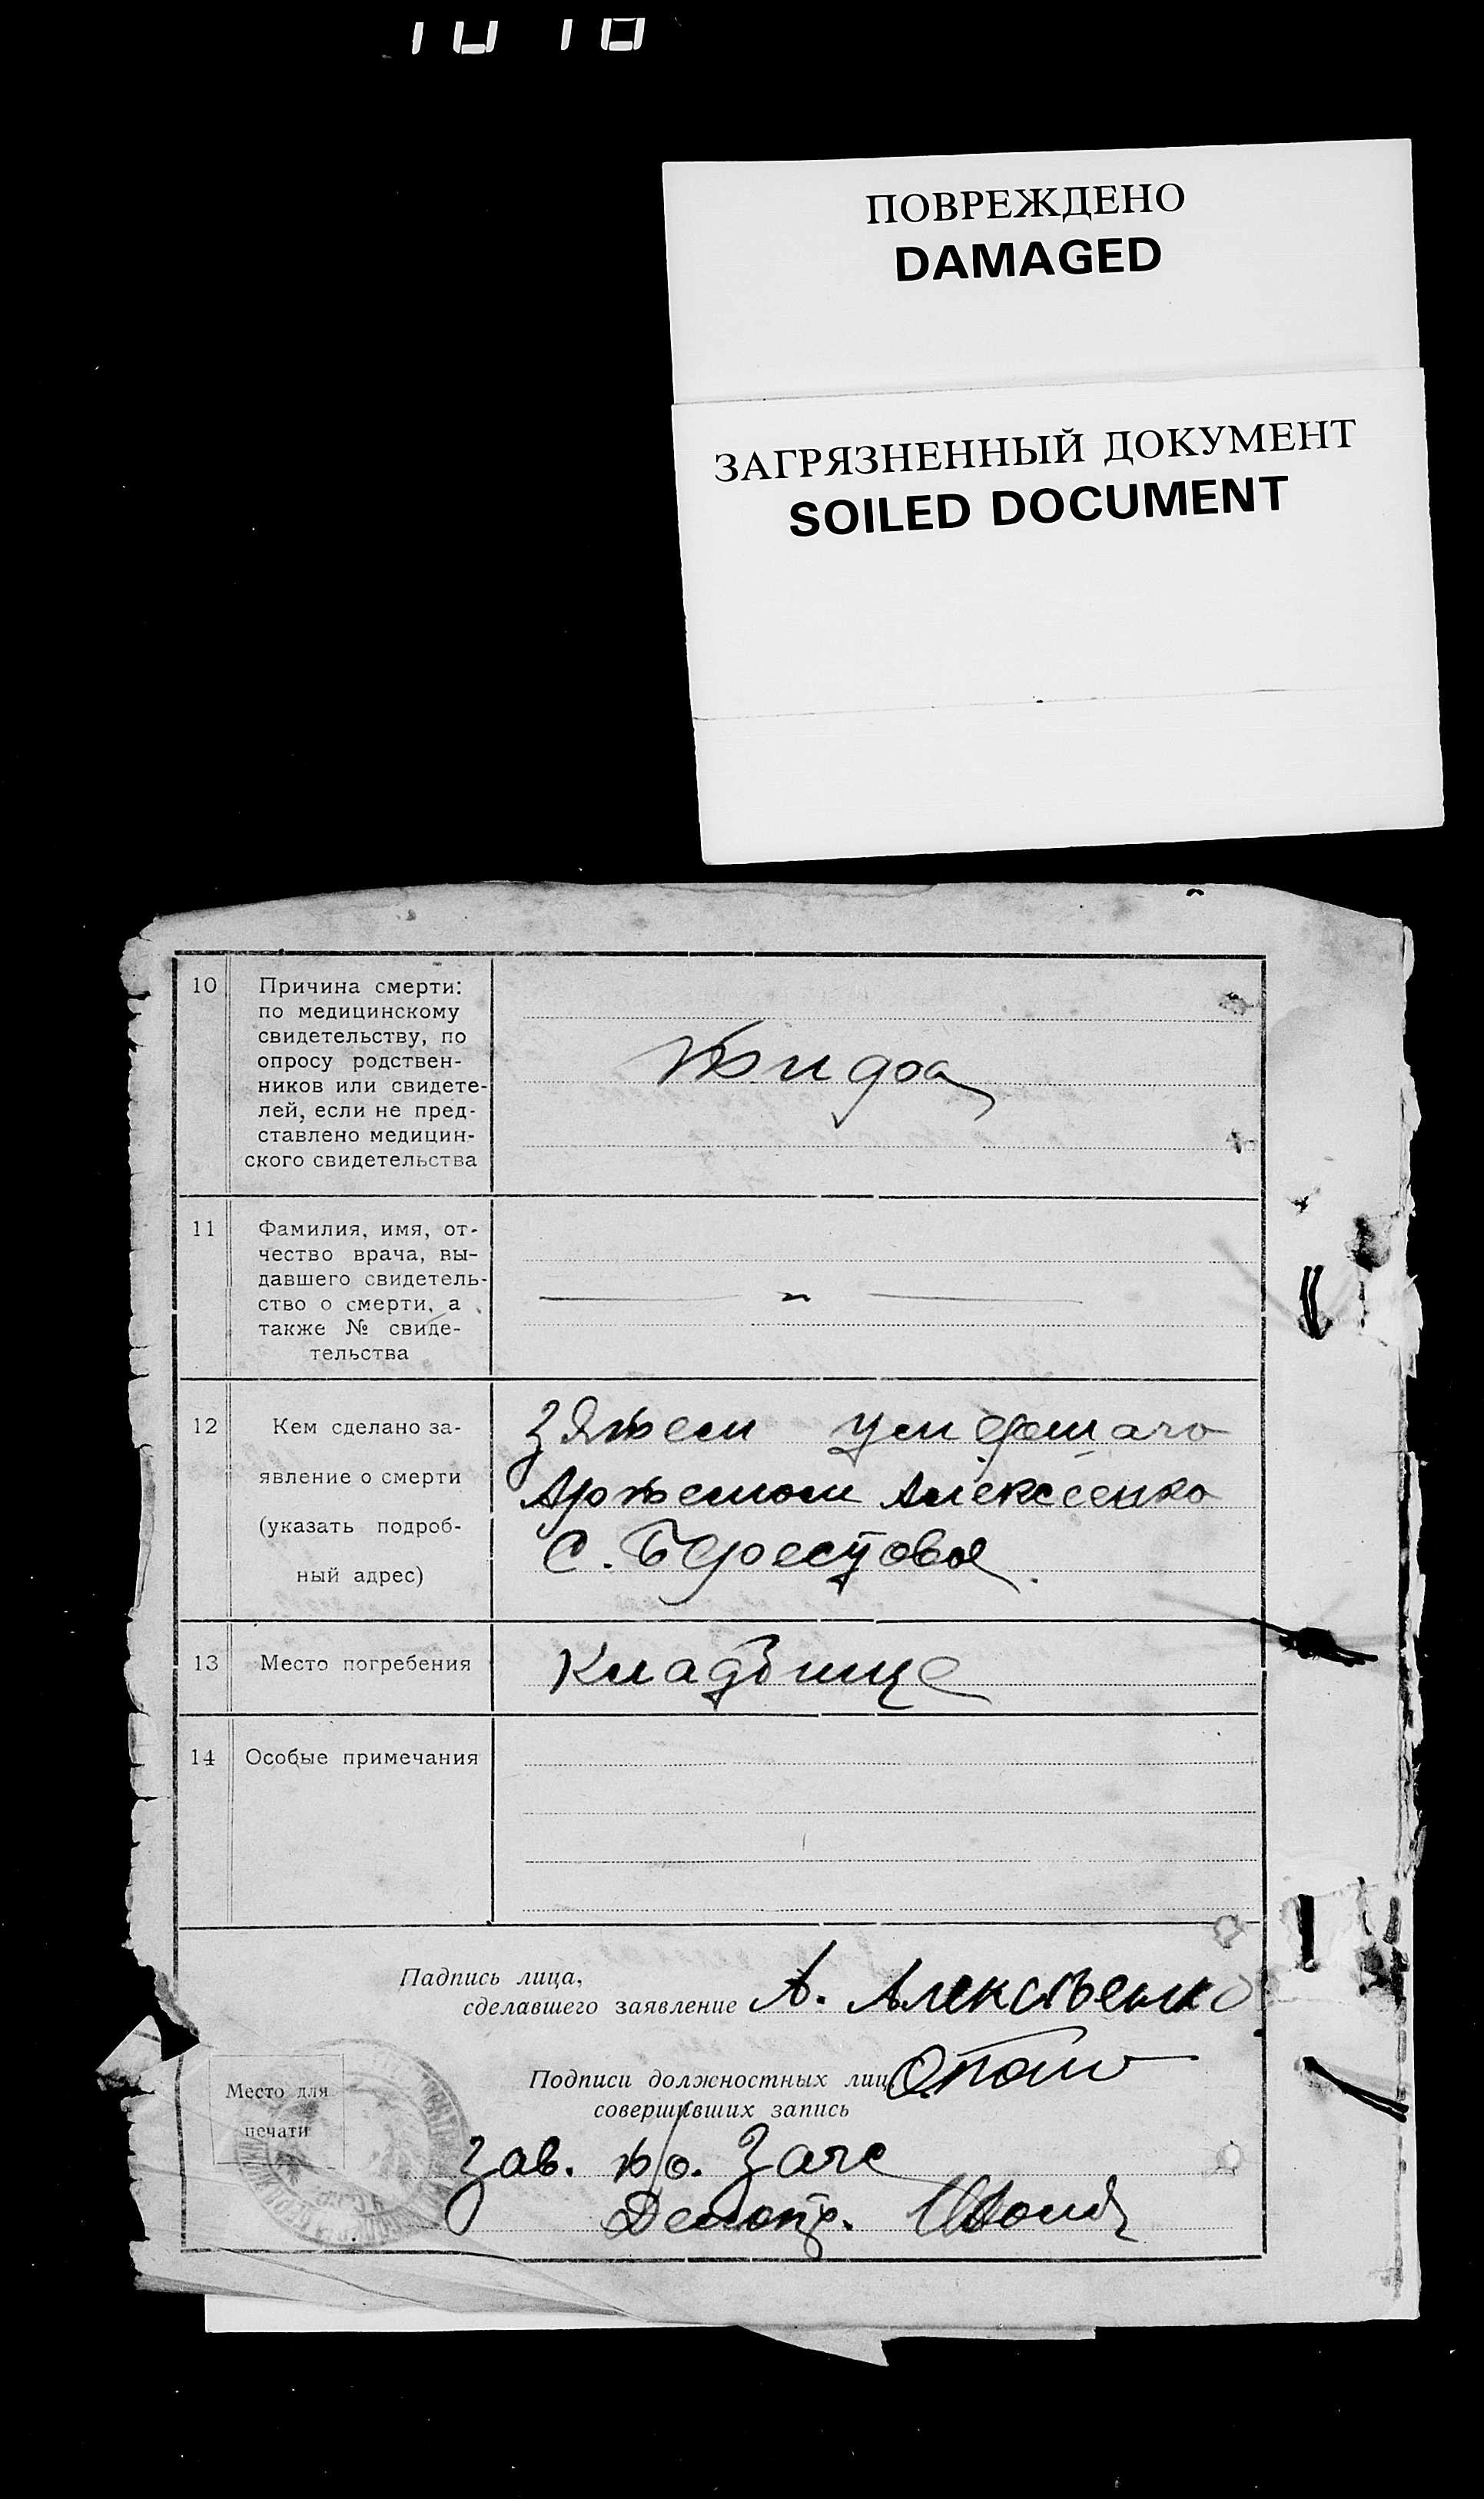 ПОВРЕЖДЕНО
DAMAGED
ЗАГРЯЗНЕННЫЙ ДОКУМЕНТ
SOILED DOCUMENT
10
Причина смерти:
по медицинскому
свидетельству, по
опросу родствен-
ников или свидете-
лей, если не пред-
ставлено медицин-
ского свидетельства
11
Фамилия, имя, от-
чество врача, вы-
давшего свидетель-
ство о смерти, а
также № свиде-
тельства
12
Кем сделано за-
явление о смерти
(указать подроб-
ный адрес)
Зятем умершаго
Алексеенко
с. Берестовая
13
Место погребения
Кладбище
14
Особые примечания
Падпись лица,
сделавшего заявление А. Алексѣенко
Подписи должностных лиц
совершивших запись
Место для
печати
Зав. п/о. Загс